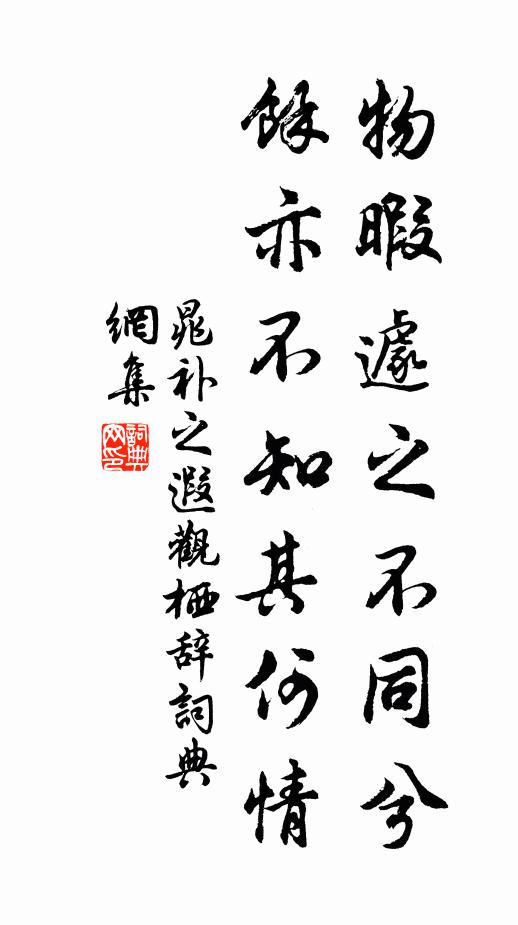 物暇遽之不同兮
餘亦不知其何情
晁补之遐觀栖辞詞典
網集
詞典网印